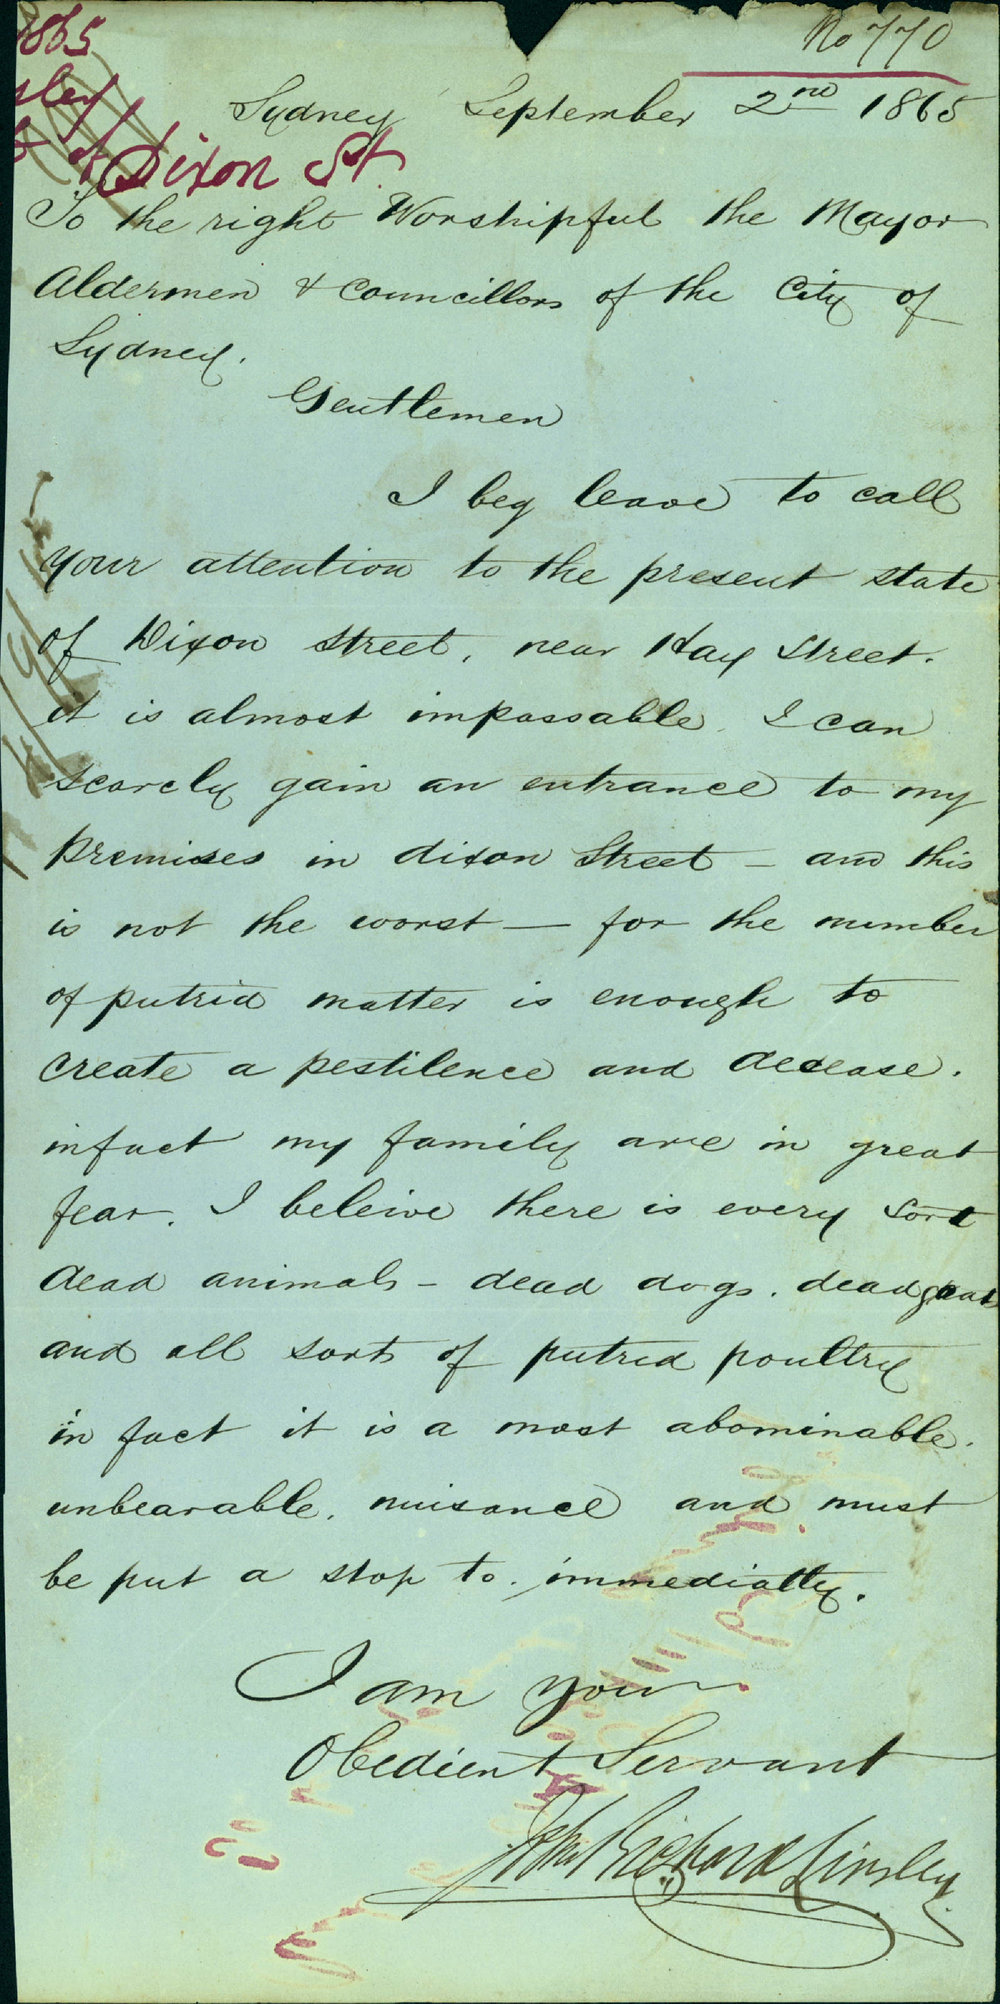 No 770
1865
sley
of Dixon St.
Sydney September 2nd 1865
To the right Worshipful the Mayor
Aldermen & Councillors of the City of
Sydney.
Gentlemen
I beg leave to call
your attention to the present state
of Dixon Street, near Hay Street.
it is almost impassable. I can
scarcly gain an entrance to my
premises in dixon Street – and this
is not the worst — for the number
of putrid matter is enough to
create a pestilence and decease.
infact my family are in great
fear. I beleive there is every sort
dead animals – dead dogs. dead goats
and all sorts of putred poultry
in fact it is a most abominable.
unbearable. nuisance and must
be put a stop to. immediatly.
I am your
Obedient Servant
John Richard Linsley